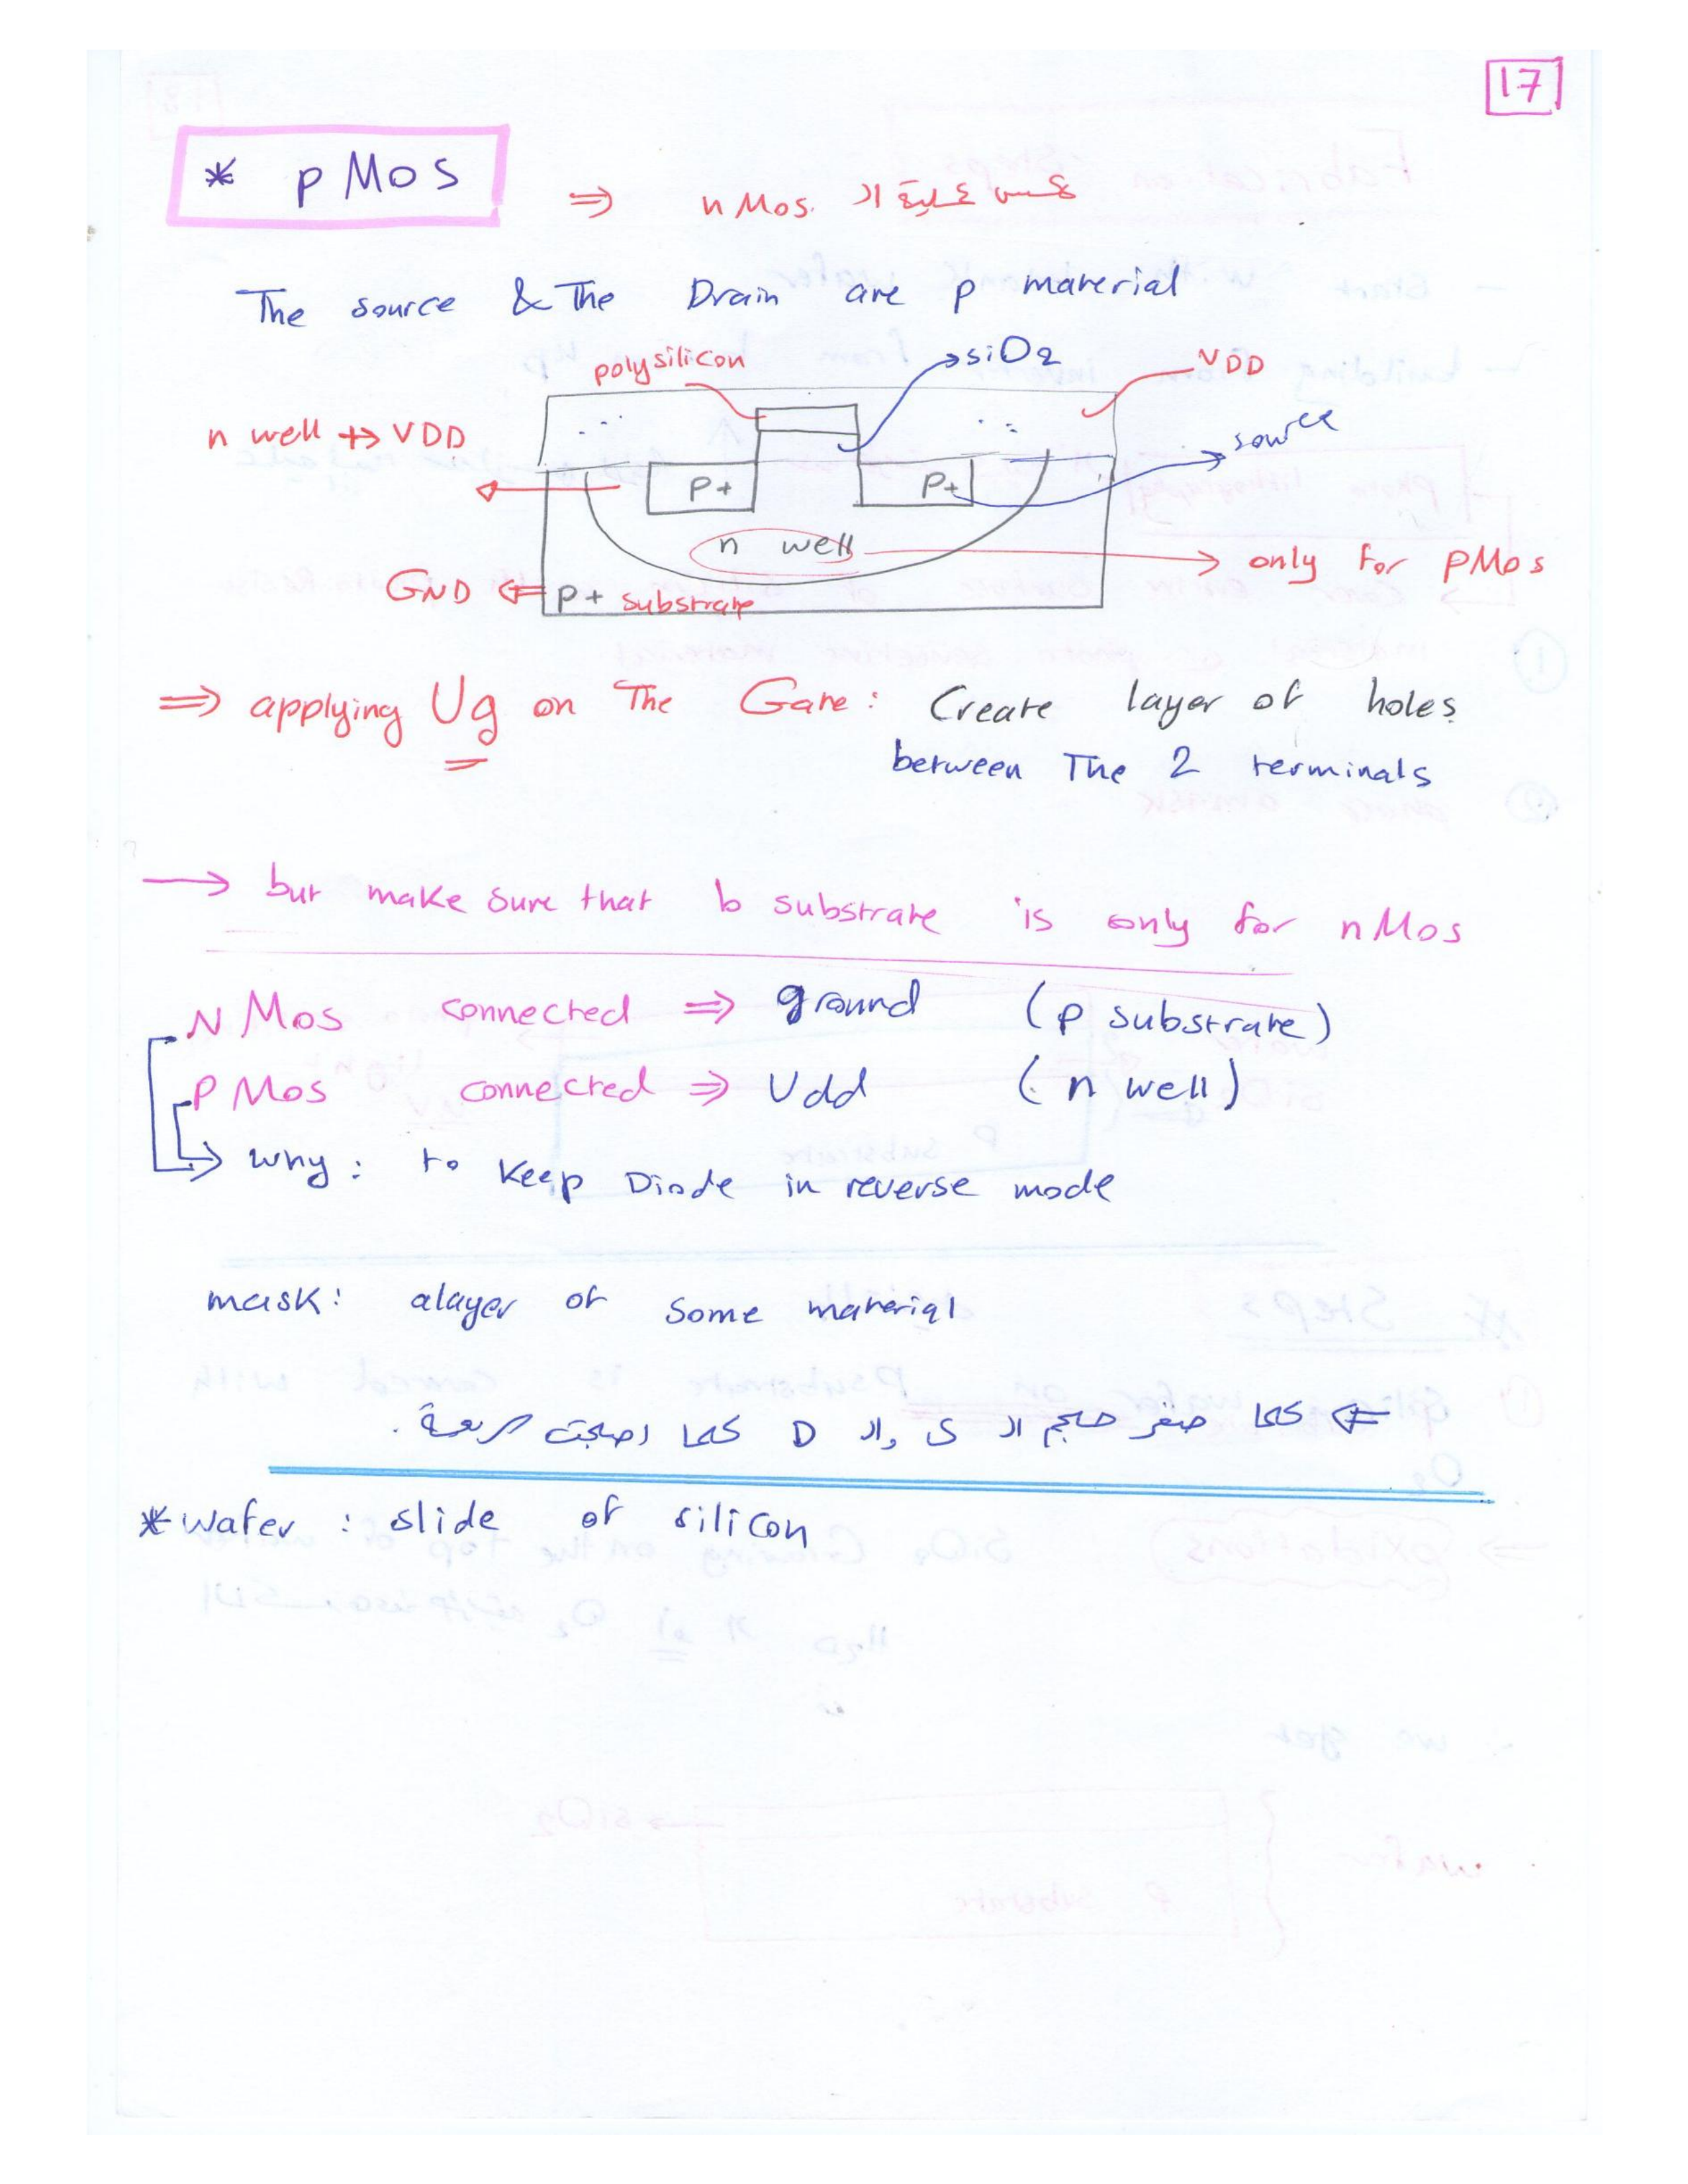 17
* pMos
⇒ nMos. عكس عملية الـ
The source & The Drain are p material
polysilicon
siO2
VDD
n well → VDD
source
P+
P+
n well
only for pMos
GND ⇐ P+ substrate
⇒ applying Ug on The Gate: Create layer of holes
between The 2 terminals
→ but make sure that b substrate is only for nMos
NMos connected ⇒ ground (p substrate)
PMos connected ⇒ Vdd (n well)
why: to keep Diode in reverse mode
mask: alayer of some material
⇐ كلما صغر حجم الـ S والـ D كلما اصبحت سريعة.
* wafer : slide of silicon